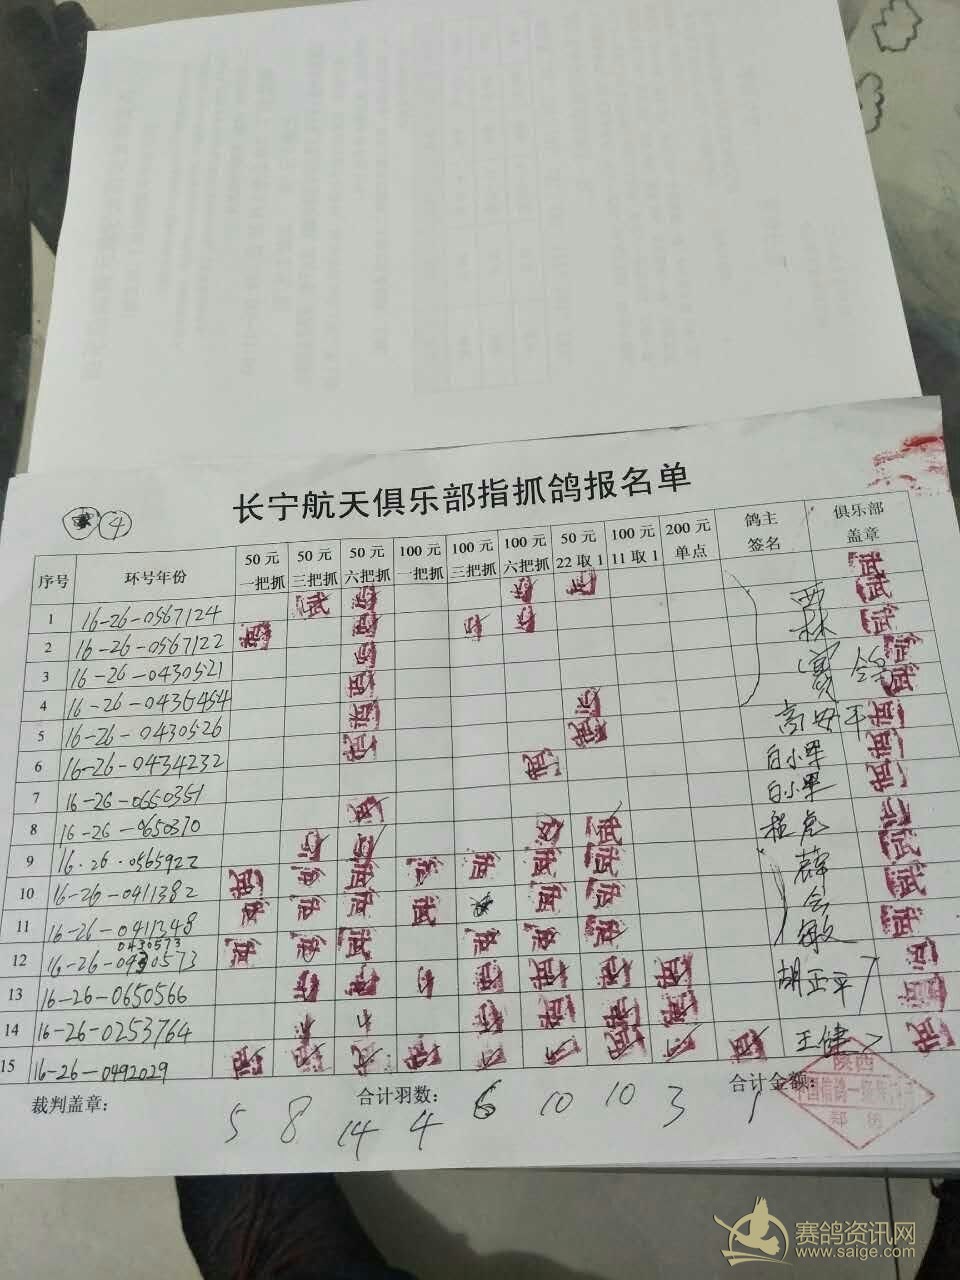 长宁航天俱乐部指抓鸽报名单
④
序号 环号年份 50元一把抓 50元三把抓 50元六把抓 100元一把抓 100元三把抓 100元六把抓 50元22取1 100元11取1 200元单点 鸽主签名 俱乐部盖章
1 16-26-0567124
2 16-26-0567122
3 16-26-0430521
4 16-26-0436454
5 16-26-0430526
6 16-26-0434232 高安平
7 16-26-0650351 白小军
8 16-26-0650370 白小军
9 16.26.0565922 程虎
10 16-26-0411382
11 16-26-0411348
0430573
12 16-26-0430573
13 16-26-0650566 胡正平
14 16-26-0253764
15 16-26-0492029 王健
裁判盖章： 合计羽数： 合计金额：
5 8 14 4 6 10 10 3 1
陕西
赛鸽资讯网
www.saige.com